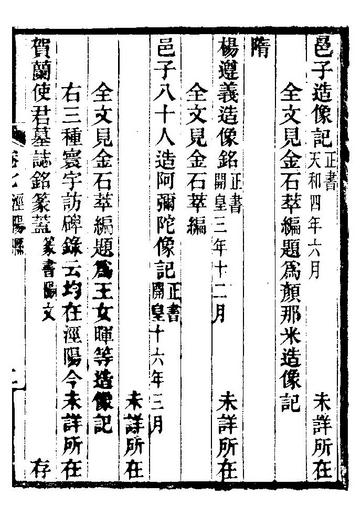 邑子造像記正書天和四年六月 未詳所在
全文見金石萃編題爲顏那米造像記
隋
楊遵義造像銘正書開皇三年十二月 未詳所在
全文見金石萃編
邑子八十人造阿彌陀像記正書開皇十六年三月 未詳所在
全文見金石萃編題爲王女暉等造像記
右三種寰宇訪碑錄云均在涇陽今未詳所在
賀蘭使君墓誌銘篆蓋篆書陽文 存